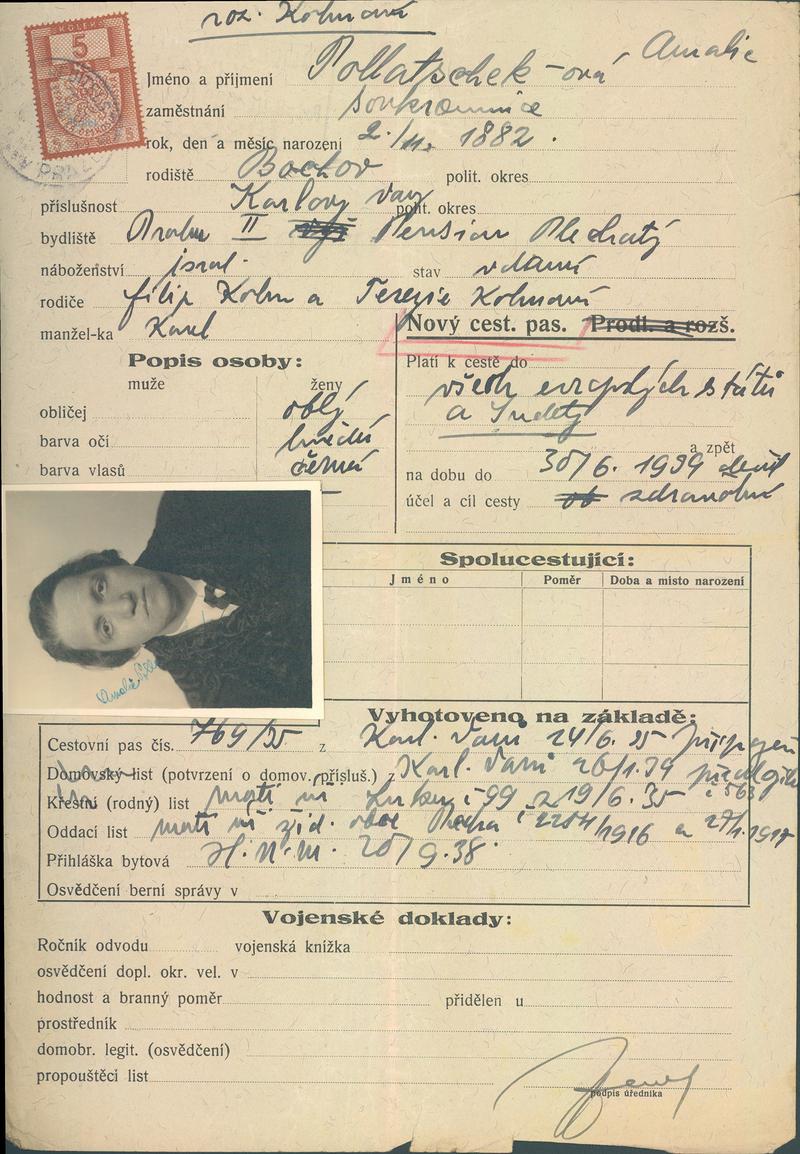 roz. Kohnová
KOLEK
5
Jméno a příjmení Pollatschek-ová Amalie
zaměstnání soukromnice
rok, den a měsíc narození 2./11. 1882.
rodiště Bochov polit. okres
příslušnost Karlovy Vary polit. okres
bydliště Praha II Pension Plechatý
náboženství isral. stav vdaná
rodiče Filip Kohn a Terezie Kohnová
manžel-ka Karel
Nový cest. pas. Prodl. a rozš.
Popis osoby:
muže ženy
obličej oblý
barva očí hnědá
barva vlasů černá
Platí k cestě do
všech evropských států
a Indety
a zpět
na dobu do 30/6. 1939
účel a cíl cesty zdravotní
Amalie
Spolucestující:
Jméno Poměr Doba a místo narození
Vyhotoveno na základě:
Cestovní pas čís. 769/35 z Karl. Vary 24/6. 35
Domovský list (potvrzení o domov. přísluš.) z Karl. Vary 26/1. 39
Křestní (rodný) list matr. č 99 z 19/6. 35 č 563
Oddací list matr. žid. obce Praha č 2284/1916 a 27/1. 1917
Přihláška bytová H.N.M. 20/9. 38.
Osvědčení berní správy v
Vojenské doklady:
Ročník odvodu vojenská knížka
osvědčení dopl. okr. vel. v
hodnost a branný poměr přidělen u
prostředník
domobr. legit. (osvědčení)
propouštěcí list
podpis úředníka